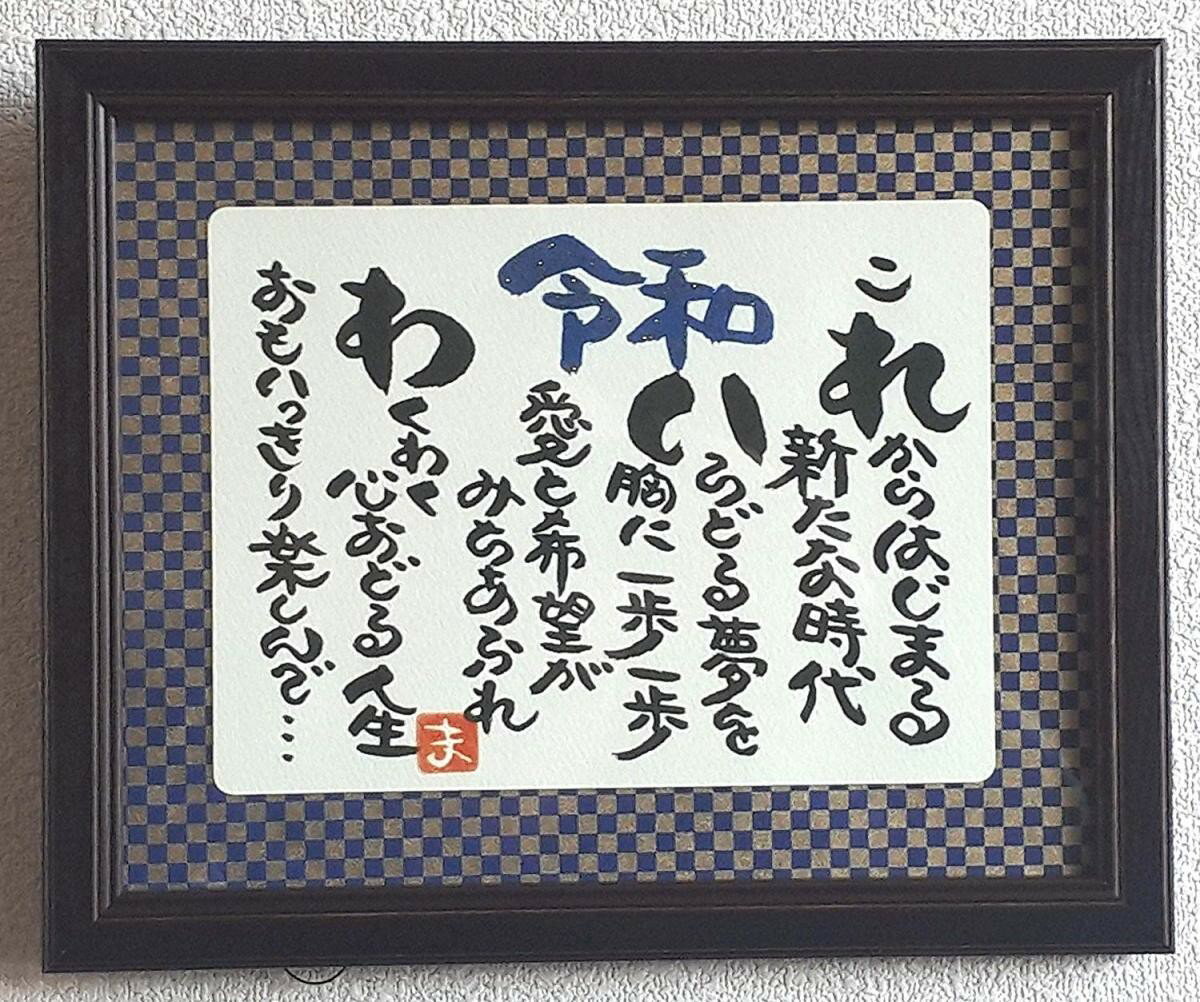 令和
これからはじまる
新たな時代
いろどる夢を
胸に一歩一歩
愛と希望が
みちあふれ
わくわく
心おどる人生
おもいっきり楽しんで…
ま